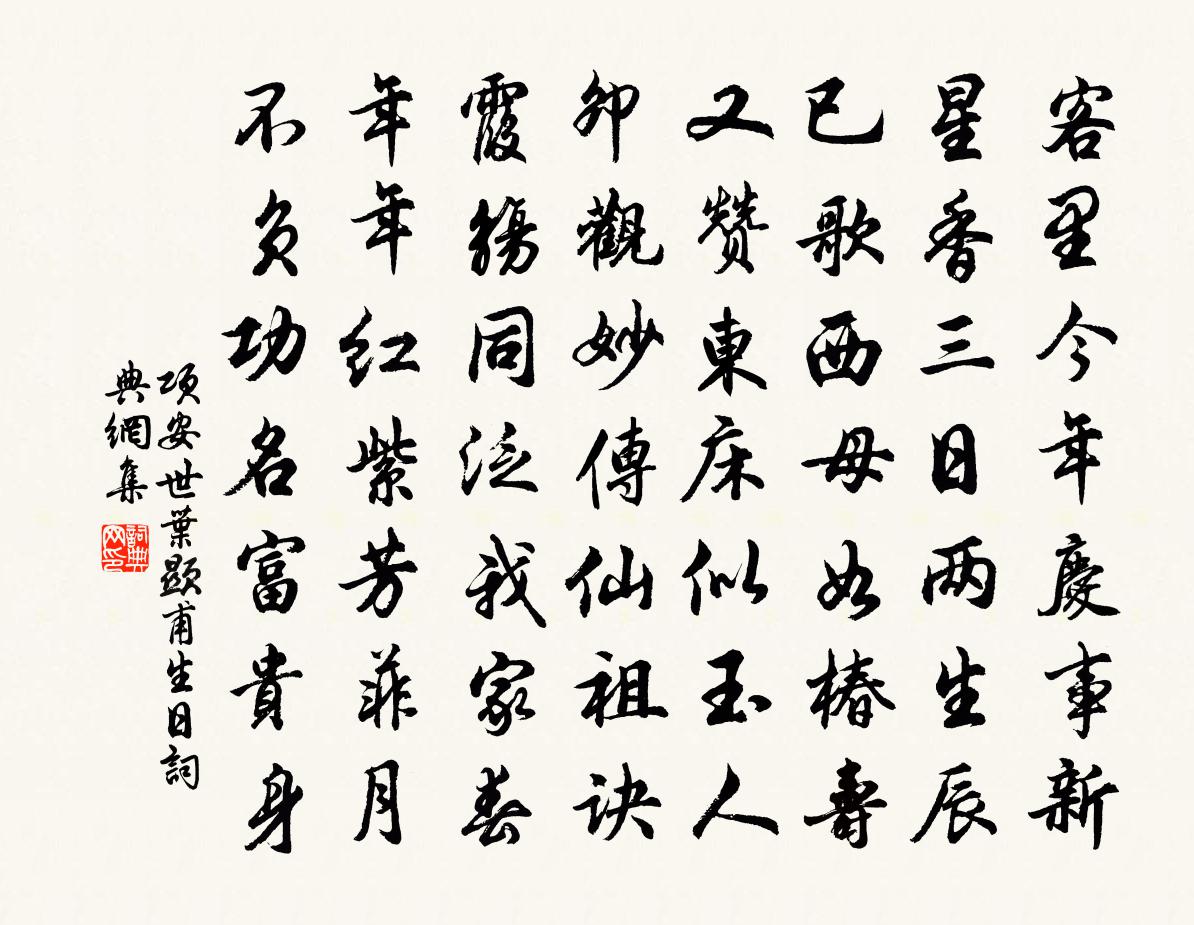 客里今年慶事新
星香三日两生辰
已歌西母如椿壽
又贊東床似玉人
卯觀妙傳仙祖訣
霞觴同泛我家春
年年紅紫芳菲月
不負功名富貴身
項安世葉顯甫生日詞
典網集
詞典
网印